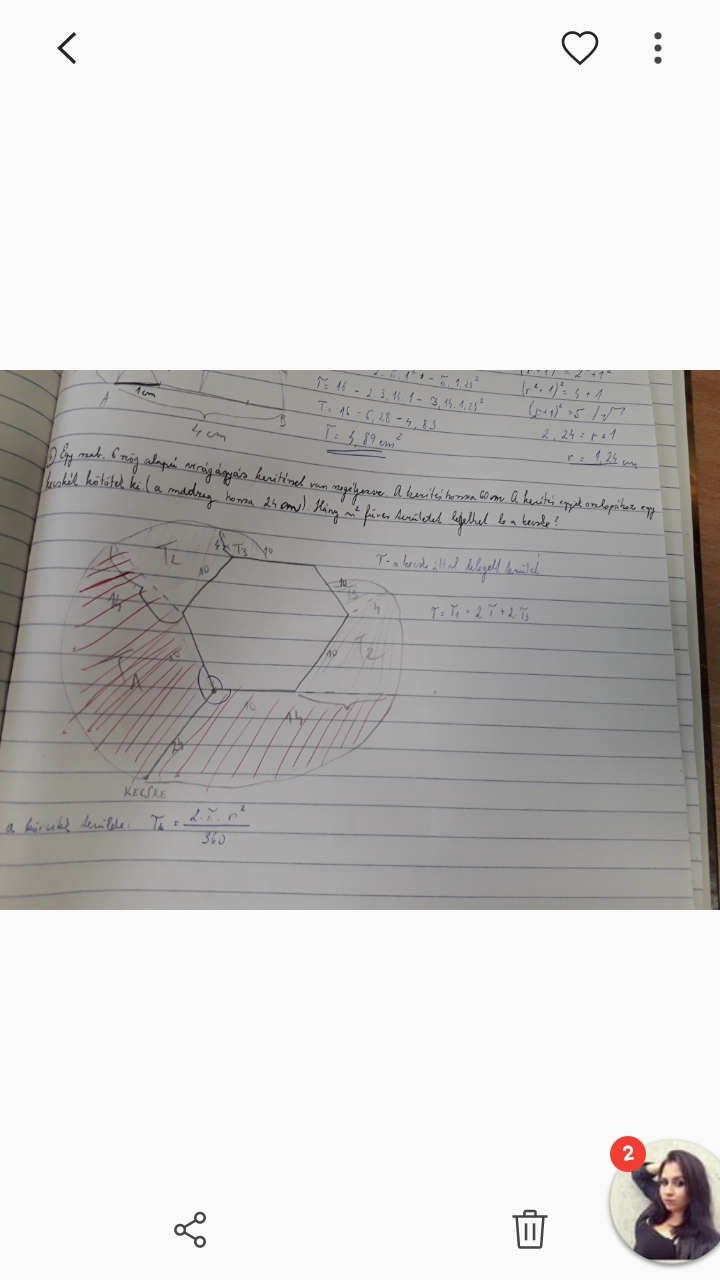 A
1cm
B
4 cm
T = 16 - 2·3,14·1 - 3,14·1,25²
T = 16 - 6,28 - 4,83
T = 4,89 cm²
(r²+1)² = 4+1
(r+1)² = 5 /√
2,24 = r+1
r = 1,24 cm
Egy szab. 6szög alapú virágágyás kerítéssel van szegélyezve. A kerítés hossza 60m. A kerítés egyik oszlopához egy
kecskét kötöttek ki (a madzag hossza 24m) Hány m² füves területet legelhet le a kecske?
T2
T3
10
10
T - a kecske által lelegelt terület
14
10
4
T = T1 + 2·T + 2·T3
10
T2
10
10
14
24
KECSKE
a körcikk területe: Tk = 2·π·r²
360
2